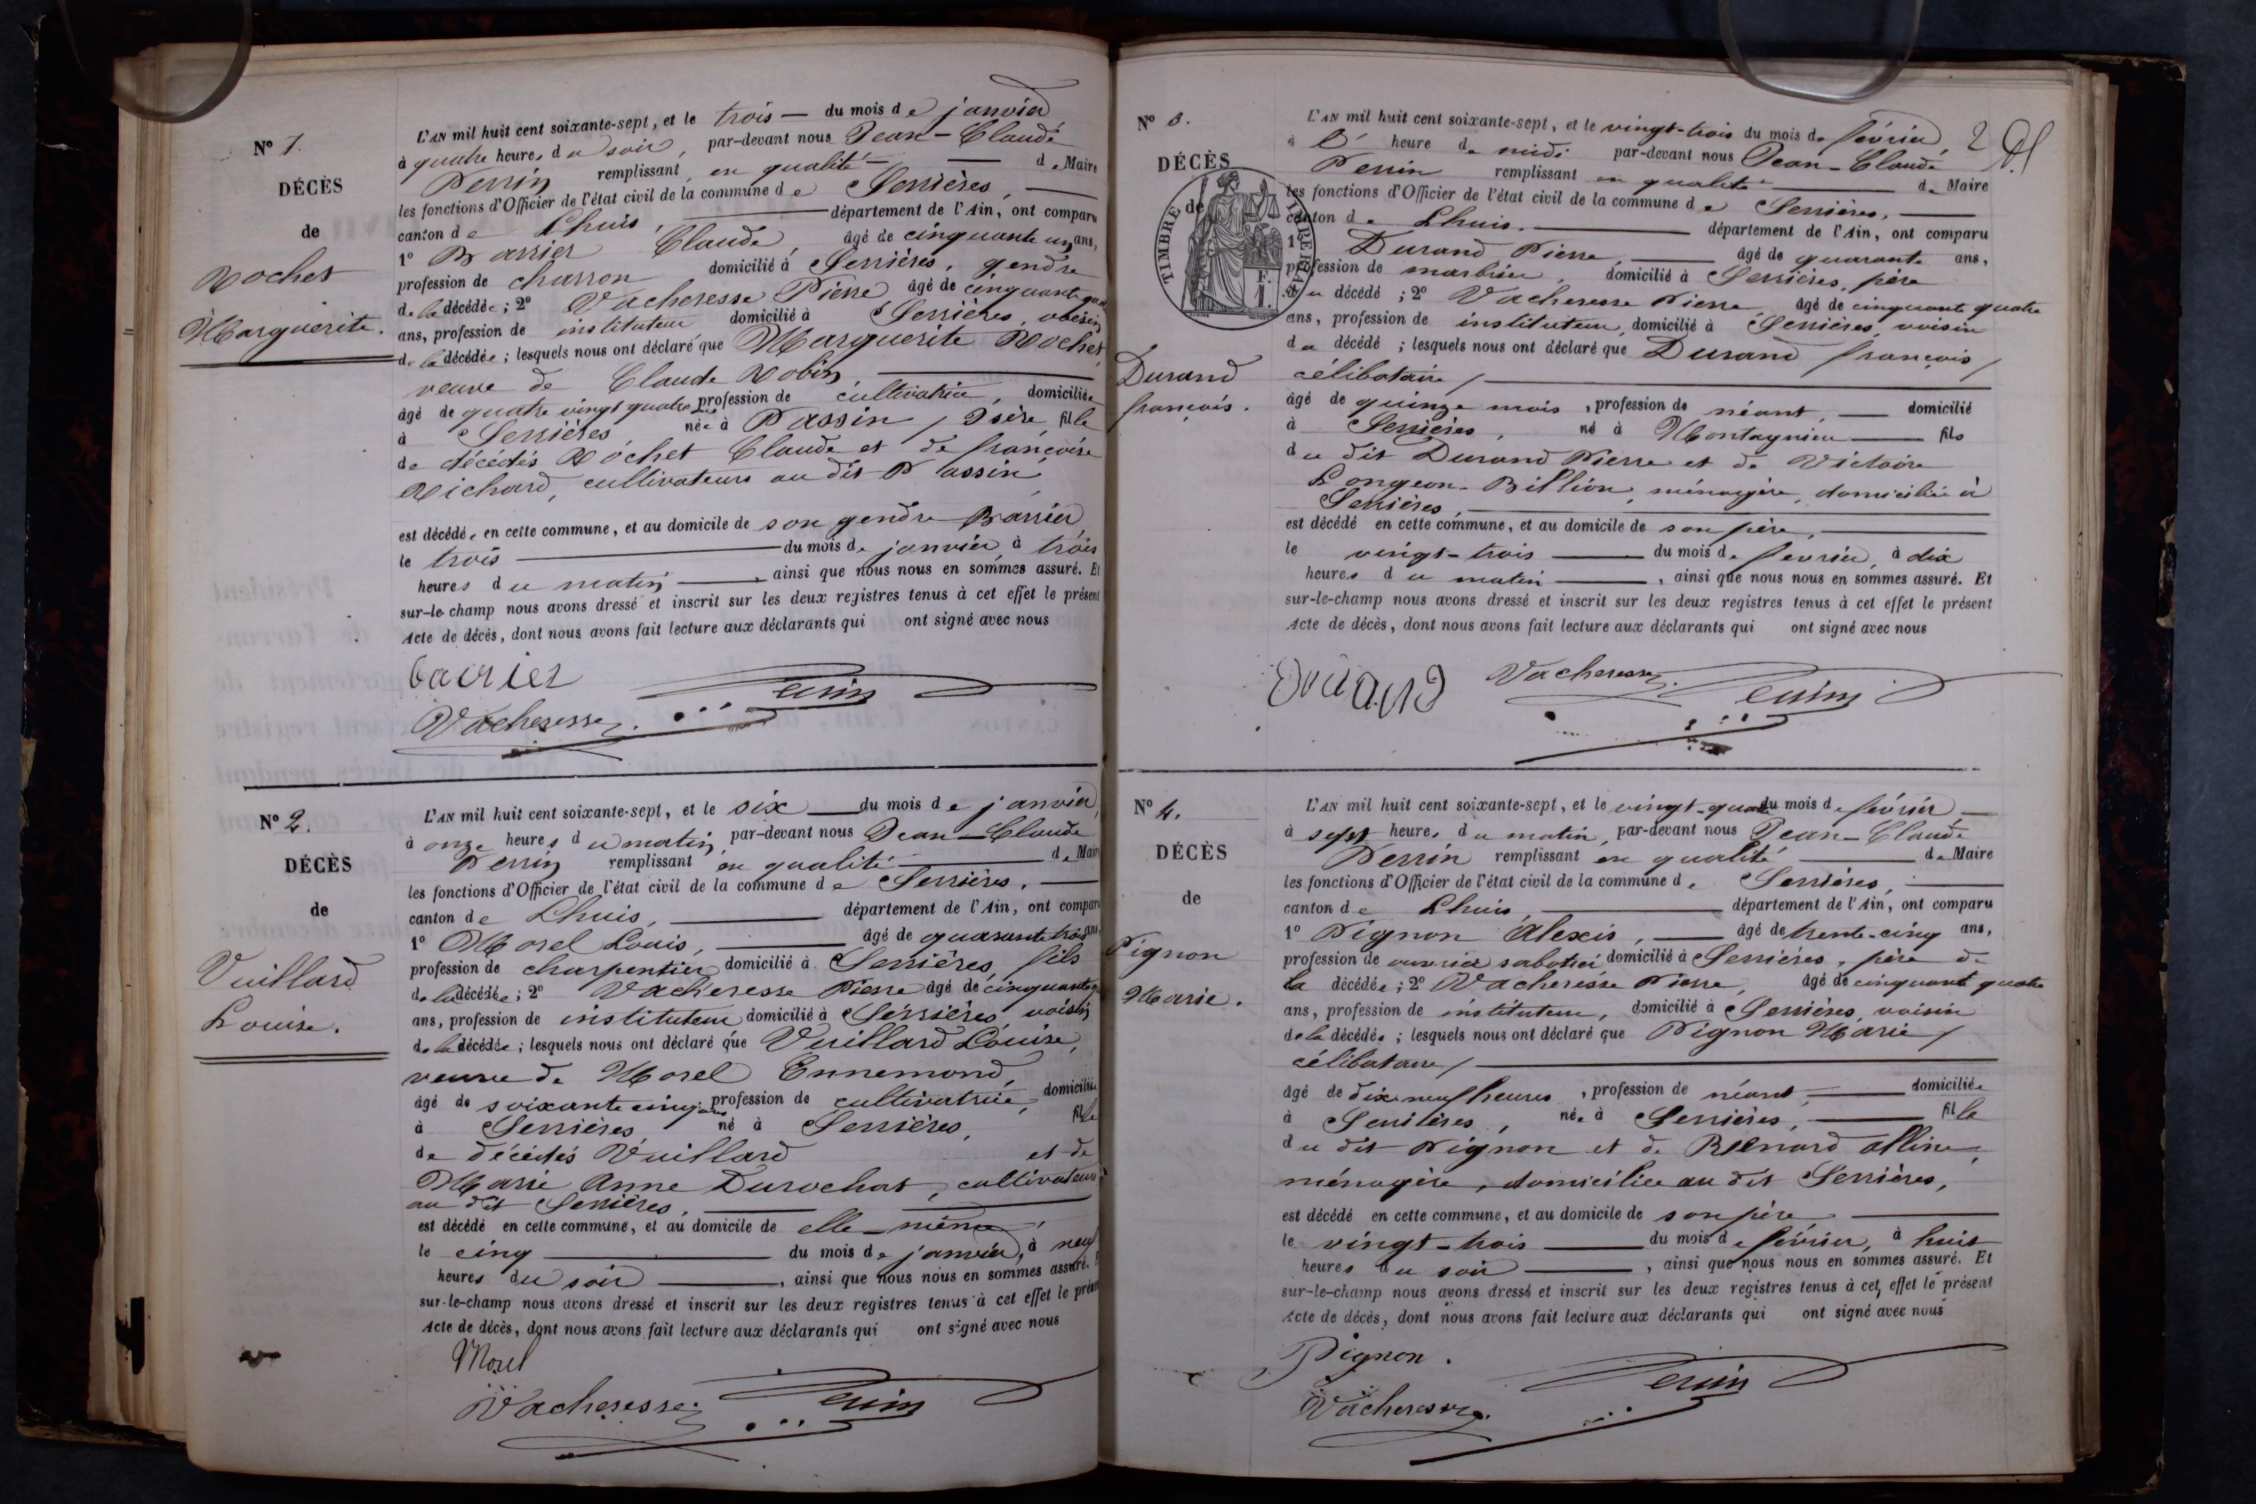 N° 1.
DÉCÈS
de
Rochet
Marguerite.
L'AN mil huit cent soixante-sept, et le trois — du mois de janvier
à quatre heures du soir, par-devant nous Jean-Claude
Perrin remplissant en qualité — de Maire
les fonctions d'Officier de l'état civil de la commune de Serrières, —
canton de Lhuis, — département de l'Ain, ont comparu
1° Barrier Claude, âgé de cinquante un ans,
profession de charron domicilié à Serrières, gendre
de la décédée ; 2° Vacheresse Pierre âgé de cinquante quatre
ans, profession de instituteur domicilié à Serrières, voisin
de la décédée ; lesquels nous ont déclaré que Marguerite Rochet
veuve de Claude Robin, —
âgé de quatre vingt quatre ans profession de cultivatrice, domiciliée
à Serrières née à Passin / Isère, fille
de décédés Rochet Claude et de françoise
Richard, cultivateurs au dit Passin
est décédée, en cette commune, et au domicile de son gendre Barrier
le trois — du mois de janvier à trois
heures du matin —, ainsi que nous nous en sommes assuré. Et
sur-le champ nous avons dressé et inscrit sur les deux registres tenus à cet effet le présent
Acte de décès, dont nous avons fait lecture aux déclarants qui ont signé avec nous
barrier
Perrin
Vacheresse
N° 2.
DÉCÈS
de
Vuillard
Louise.
L'AN mil huit cent soixante-sept, et le six — du mois de janvier
à onze heures du matin, par-devant nous Jean-Claude
Perrin remplissant en qualité — de Maire
les fonctions d'Officier de l'état civil de la commune de Serrières, —
canton de Lhuis, — département de l'Ain, ont comparu
1° Morel Louis, — âgé de quarante trois ans,
profession de charpentier domicilié à Serrières, fils
de la décédée ; 2° Vacheresse Pierre âgé de cinquante
ans, profession de instituteur domicilié à Serrières, voisin
de la décédée ; lesquels nous ont déclaré que Vuillard Louise,
veuve de Morel Ennemond,
âgé de soixante cinq ans profession de cultivatrice, domiciliée
à Serrières né à Serrières, fille
de décédés Vuillard et de
Marie Anne Durochat, cultivateurs
au dit Serrières, —
est décédé en cette commune, et au domicile de elle-même,
le cinq — du mois de janvier, à neuf
heures du soir —, ainsi que nous nous en sommes assuré. Et
sur-le-champ nous avons dressé et inscrit sur les deux registres tenus à cet effet le présent
Acte de décès, dont nous avons fait lecture aux déclarants qui ont signé avec nous
Morel
Vacheresse
Perrin
2
N° 3.
DÉCÈS
de
TIMBRE IMPÉRIAL
1 F.
Durand
françois.
L'AN mil huit cent soixante-sept, et le vingt-trois du mois de février,
à l' heure de midi par-devant nous Jean-Claude
Perrin remplissant en qualité — de Maire
les fonctions d'Officier de l'état civil de la commune de Serrières, —
canton de Lhuis. — département de l'Ain, ont comparu
1° Durand Pierre, — âgé de quarante ans,
profession de marbrier, domicilié à Serrières, père
du décédé ; 2° Vacheresse Pierre, âgé de cinquante quatre
ans, profession de instituteur, domicilié à Serrières, voisin
du décédé ; lesquels nous ont déclaré que Durand françois /
célibataire / —
âgé de quinze mois, profession de néant, — domicilié
à Serrières, né à Montagnieu — fils
du dit Durand Pierre et de Victoire
Longeon-Billion, ménagère, domiciliée à
Serrières, —
est décédé en cette commune, et au domicile de son père, —
le vingt-trois — du mois de fevrier, à dix
heures du matin —, ainsi que nous nous en sommes assuré. Et
sur-le-champ nous avons dressé et inscrit sur les deux registres tenus à cet effet le présent
Acte de décès, dont nous avons fait lecture aux déclarants qui ont signé avec nous
Durand
Vacheresse
Perrin
N° 4.
DÉCÈS
de
Pignon
Marie.
L'AN mil huit cent soixante-sept, et le vingt-quatre du mois de février —
à sept heures du matin, par-devant nous Jean-Claude
Perrin remplissant en qualité — de Maire
les fonctions d'Officier de l'état civil de la commune de Serrières, —
canton de Lhuis, — département de l'Ain, ont comparu
1° Pignon Alexis, — âgé de trente-cinq ans,
profession de ouvrier sabotier domicilié à Serrières, père de
la décédée ; 2° Vacheresse Pierre, âgé de cinquante quatre
ans, profession de instituteur, domicilié à Serrières, voisin
de la décédée ; lesquels nous ont déclaré que Pignon Marie /
célibataire / —
âgé de dix-neuf heures, profession de néant, — domiciliée
à Serrières, née à Serrières, — fille
du dit Pignon et de Bernard
ménagère, domiciliée au dit Serrières,
est décédé en cette commune, et au domicile de son père —
le vingt-trois — du mois de février, à huit
heures du soir —, ainsi que nous nous en sommes assuré. Et
sur-le-champ nous avons dressé et inscrit sur les deux registres tenus à cet effet le présent
Acte de décès, dont nous avons fait lecture aux déclarants qui ont signé avec nous
Pignon.
Vacheresse
Perrin